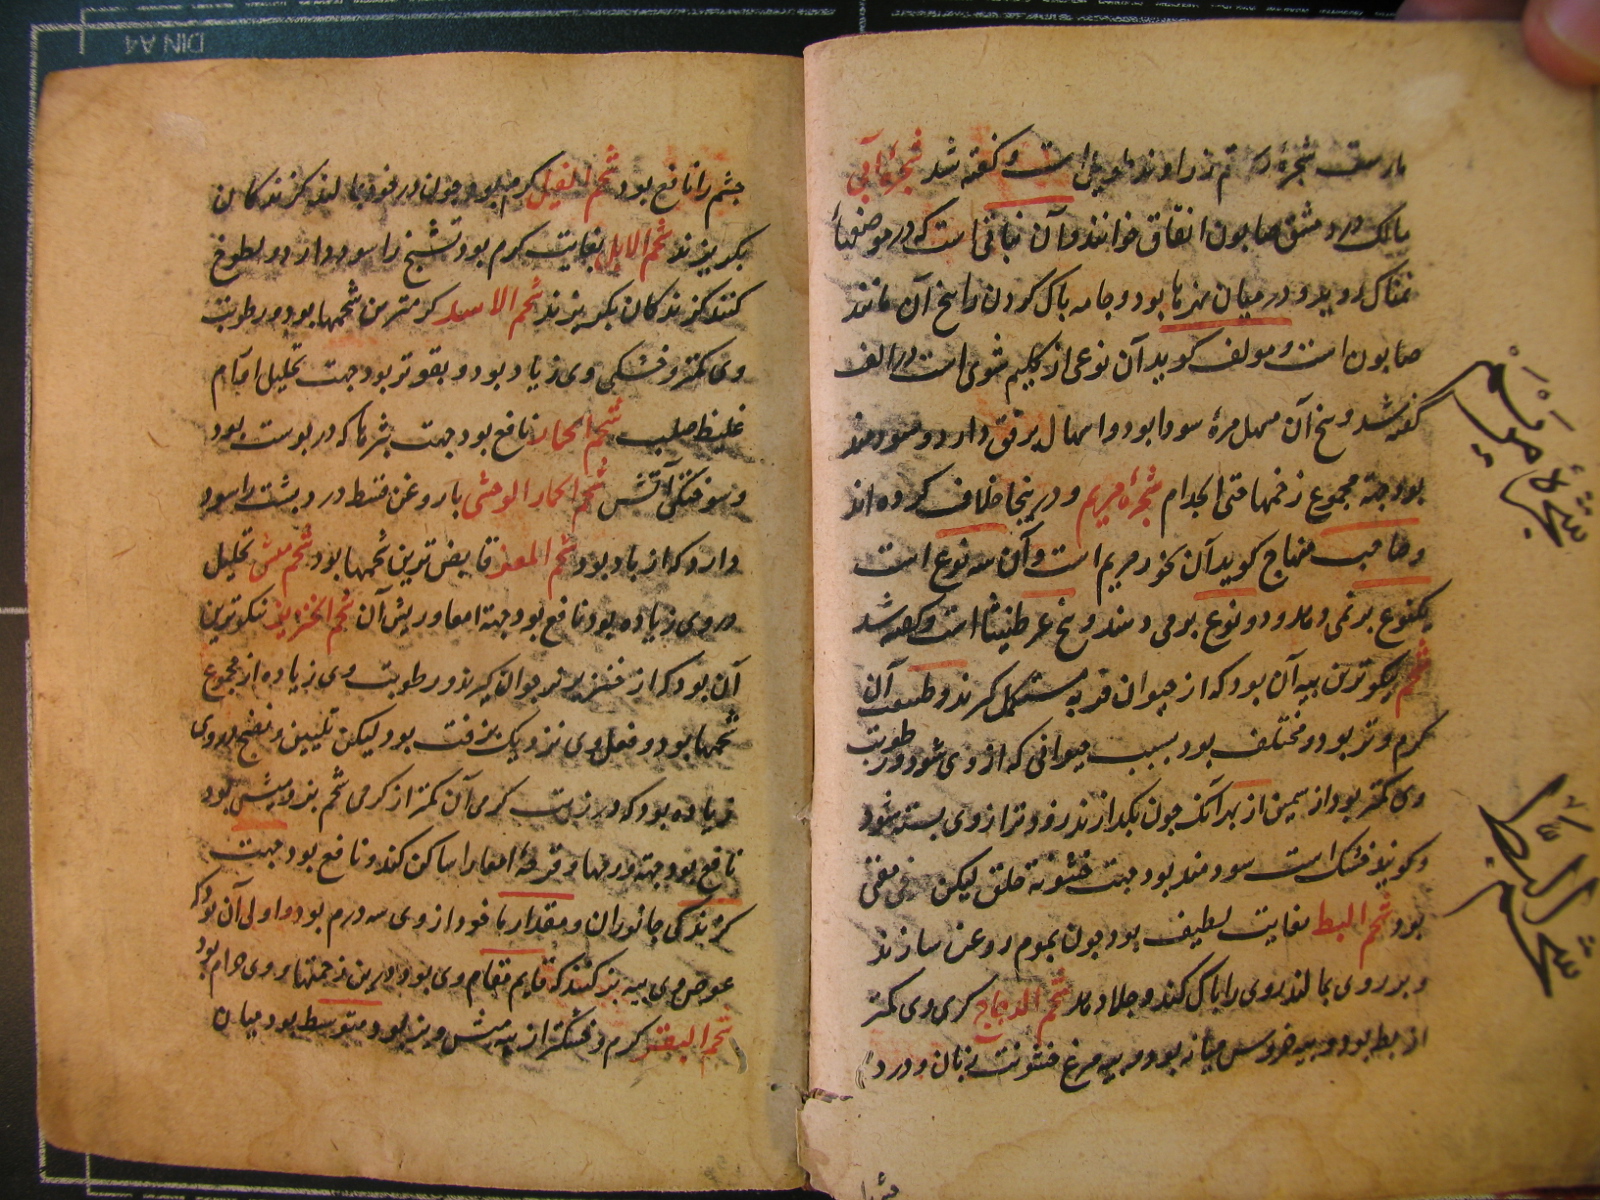 شجرهٔ رستم زراوند طویل است و گفته شد شجرهٔ ابی
مالک در دمشق صابون القاق خوانند و آن نباتی است که در موضعهاء
نمناک روید و در میان نهرها بود و جامه پاک کردن را بیخ آن مانند
صابون است و مولف گوید آن نوعی از گلیم شوی است در الف
گفته شد و بیخ آن مسهل مرهٔ سودا بود و اسهال برفق دارد و سودمند
بود جهة مجموع زخمها حتی الجذام شجرهٔ مریم و درینجا خلاف کرده اند
و صاحب منهاج گوید آن بخور مریم است و آن سه نوع است
یکنوع و دو نوع بیخ عرطنیثا است و گفته شد
شحم نیکوترین پیه آن بود که از حیوان گیرند و طبیعت آن
گرم و تر بود و مختلف بود بسبب حیوانی که از وی شود و رطوبت
وی کمتر بود از سمین از بهر آنک چون بگدازند زودتر از وی بسته شود
و گویند خشک است سودمند بود جهت خشونة حلق لیکن مرخی
بود شحم البط بغایت لطیف بود چون بموم روغن سازند
و بر روی بمالند روی را پاک کند و جلا دهد شحم الدجاج گرمی وی کمتر
از بط بود و پیه خروس میانه بود و پیه مرغ خشونت زبان و درد
شجرهٔ مریم
شحم البط
چشم را نافع بود شحم الفیل گرم بود و چون در خود بمالند گزندکان
بگریزند شحم الابل بغایت گرم بود تشنج را سود دارد و لطوخ
کنند گزندکان بگریزند شحم الاسد گرمترین شحمها بود و رطوبت
وی کمتر و خشکی وی زیاد بود و بقوتر بود جهت تحلیل اورام
غلیظ صلب شحم الحمار نافع بود جهت بثرها که در پوست بود
و سوختگی آتش شحم الحمار الوحشی با روغن قسط درد پشت را سود
دارد که از باد بود شحم المعز قابض ترین شحمها بود شحم میش تحلیل
در وی زیاده بود نافع بود جهة امعا و ریش آن شحم الخنزیر نیکوترین
آن بود که از خنزیر نر جوان گیرند و رطوبت وی زیاده از مجموع
شحمها بود و فعل وی نزدیک بزفت بود لیکن تلیین و نضج در وی
زیاده بود که در زیت گرمی آن کمتر از گرمی شحم بز و میش بود
نافع بود جهة ورمها و قرحهٔ امعا را ساکن کند و نافع بود جهت
گزندگی جانوران و مقدار ماخوذ از وی سه درم بود و اولی آن بود که
عوض وی پیه بز کنند که قایم مقام وی بود درین زحمتها و وی حرام بود
شحم البقر گرم و خشکتر از پیه میش و بز بود و متوسط بود میان